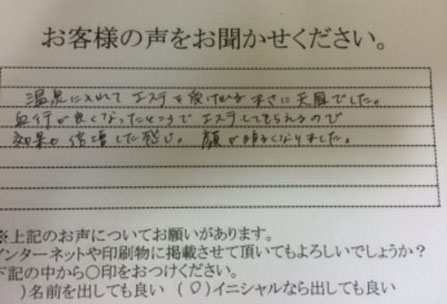 お客様の声をお聞かせください。
温泉に入れて エステも受けれる まさに天国でした。
血行が良くなったところで エステしてもらえるので
効果も倍増した感じ。 顔が明るくなりました。
※上記のお声についてお願いがあります。
インターネットや印刷物に掲載させて頂いてもよろしいでしょうか?
下記の中から○印をおつけください。
)名前を出しても良い (○)イニシャルなら出しても良い